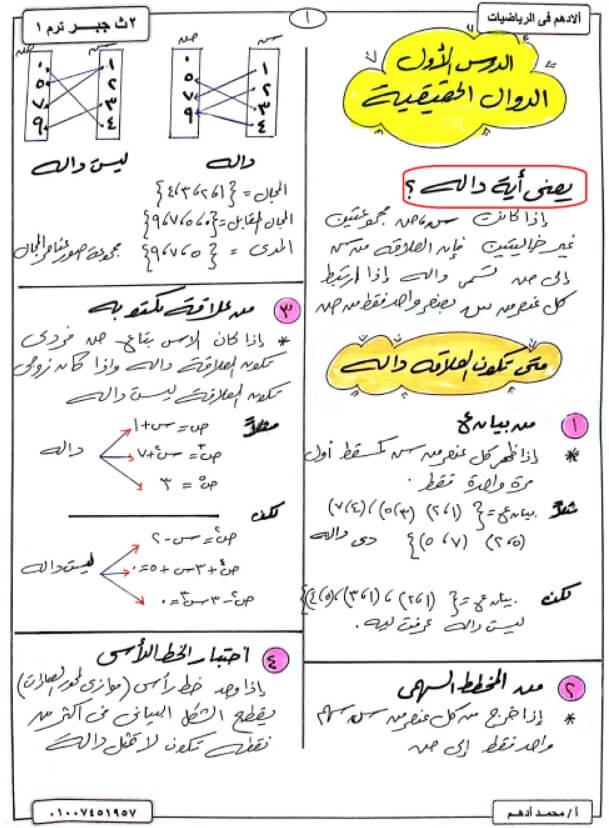 ألادهم فى الرياضيات
١
٢ث جبـر ترم ١
الدرس الأول
الدوال الحقيقية
يعنى أية داله ؟
إذا كانت س، ص مجموعتين
غير خاليتين فإن العلاقة من س
إلى ص تسمى داله إذا ارتبط
كل عنصر من س بعنصر واحد فقط من ص
متى تكون العلاقة داله
١ من بيان ع
* إذا ظهر كل عنصر من س كمسقط أول
مرة واحدة فقط.
مثلاً بيان ع = { (١، ٢) (٣، ٥) ، (٤، ٧)
(٥، ٢) (٧، ٥) } دى داله
لكن بيان ع = { (١، ٢) ، (١، ٣) ، (٥، ٤) }
ليست داله عرفت ليه.
٢ من المخطط السهمى
* إذا خرج من كل عنصر من س سهم
واحد فقط إلى ص
س ص
١ ٠
٢ ٥
٣ ٧
٤ ٩
داله
س ص
١ ٠
٢ ٥
٣ ٧
٤ ٩
ليست داله
المجال = {١، ٢، ٣، ٤}
المجال المقابل = {٠، ٥، ٧، ٩}
المدى = {٥، ٧، ٩} مجموعة صور عناصر المجال
٣ من علاقة مكتوبه
* إذا كان الاس بتاع ص فردى
تكون العلاقة داله وإذا كان زوجى
تكون العلاقة ليست داله
مثلاً
ص = س + ١
داله
لكن
ص² = س - ٢
ليست داله
٤ اختبار الخط الرأسى
إذا وجد خط رأسى (موازى لمحور الصادات)
يقطع الشكل البيانى فى أكثر من
نقطه تكون لا تمثل داله
أ / محمد أدهم
٠١٠٠٧٤٥١٩٥٧